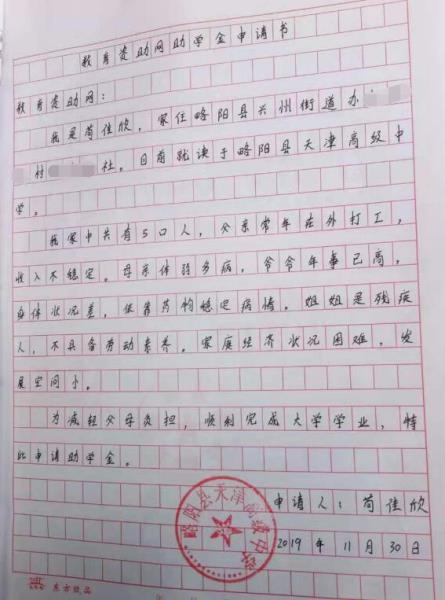 教育资助网助学金申请书
教育资助网:
我是苟佳欣,家住略阳县兴州街道办
村 社。目前就读于略阳县天津高级中
学。
我家中共有5口人,父亲常年在外打工,
收入不稳定。母亲体弱多病,爷爷年事已高,
身体状况差,依靠药物稳定病情。姐姐是残疾
人,不具备劳动素养。家庭经济状况困难,发
展空间小。
为减轻父母负担,顺利完成大学学业,特
此申请助学金。
申请人:苟佳欣
2019年11月30日
略阳县天津高级中学
东方纸品